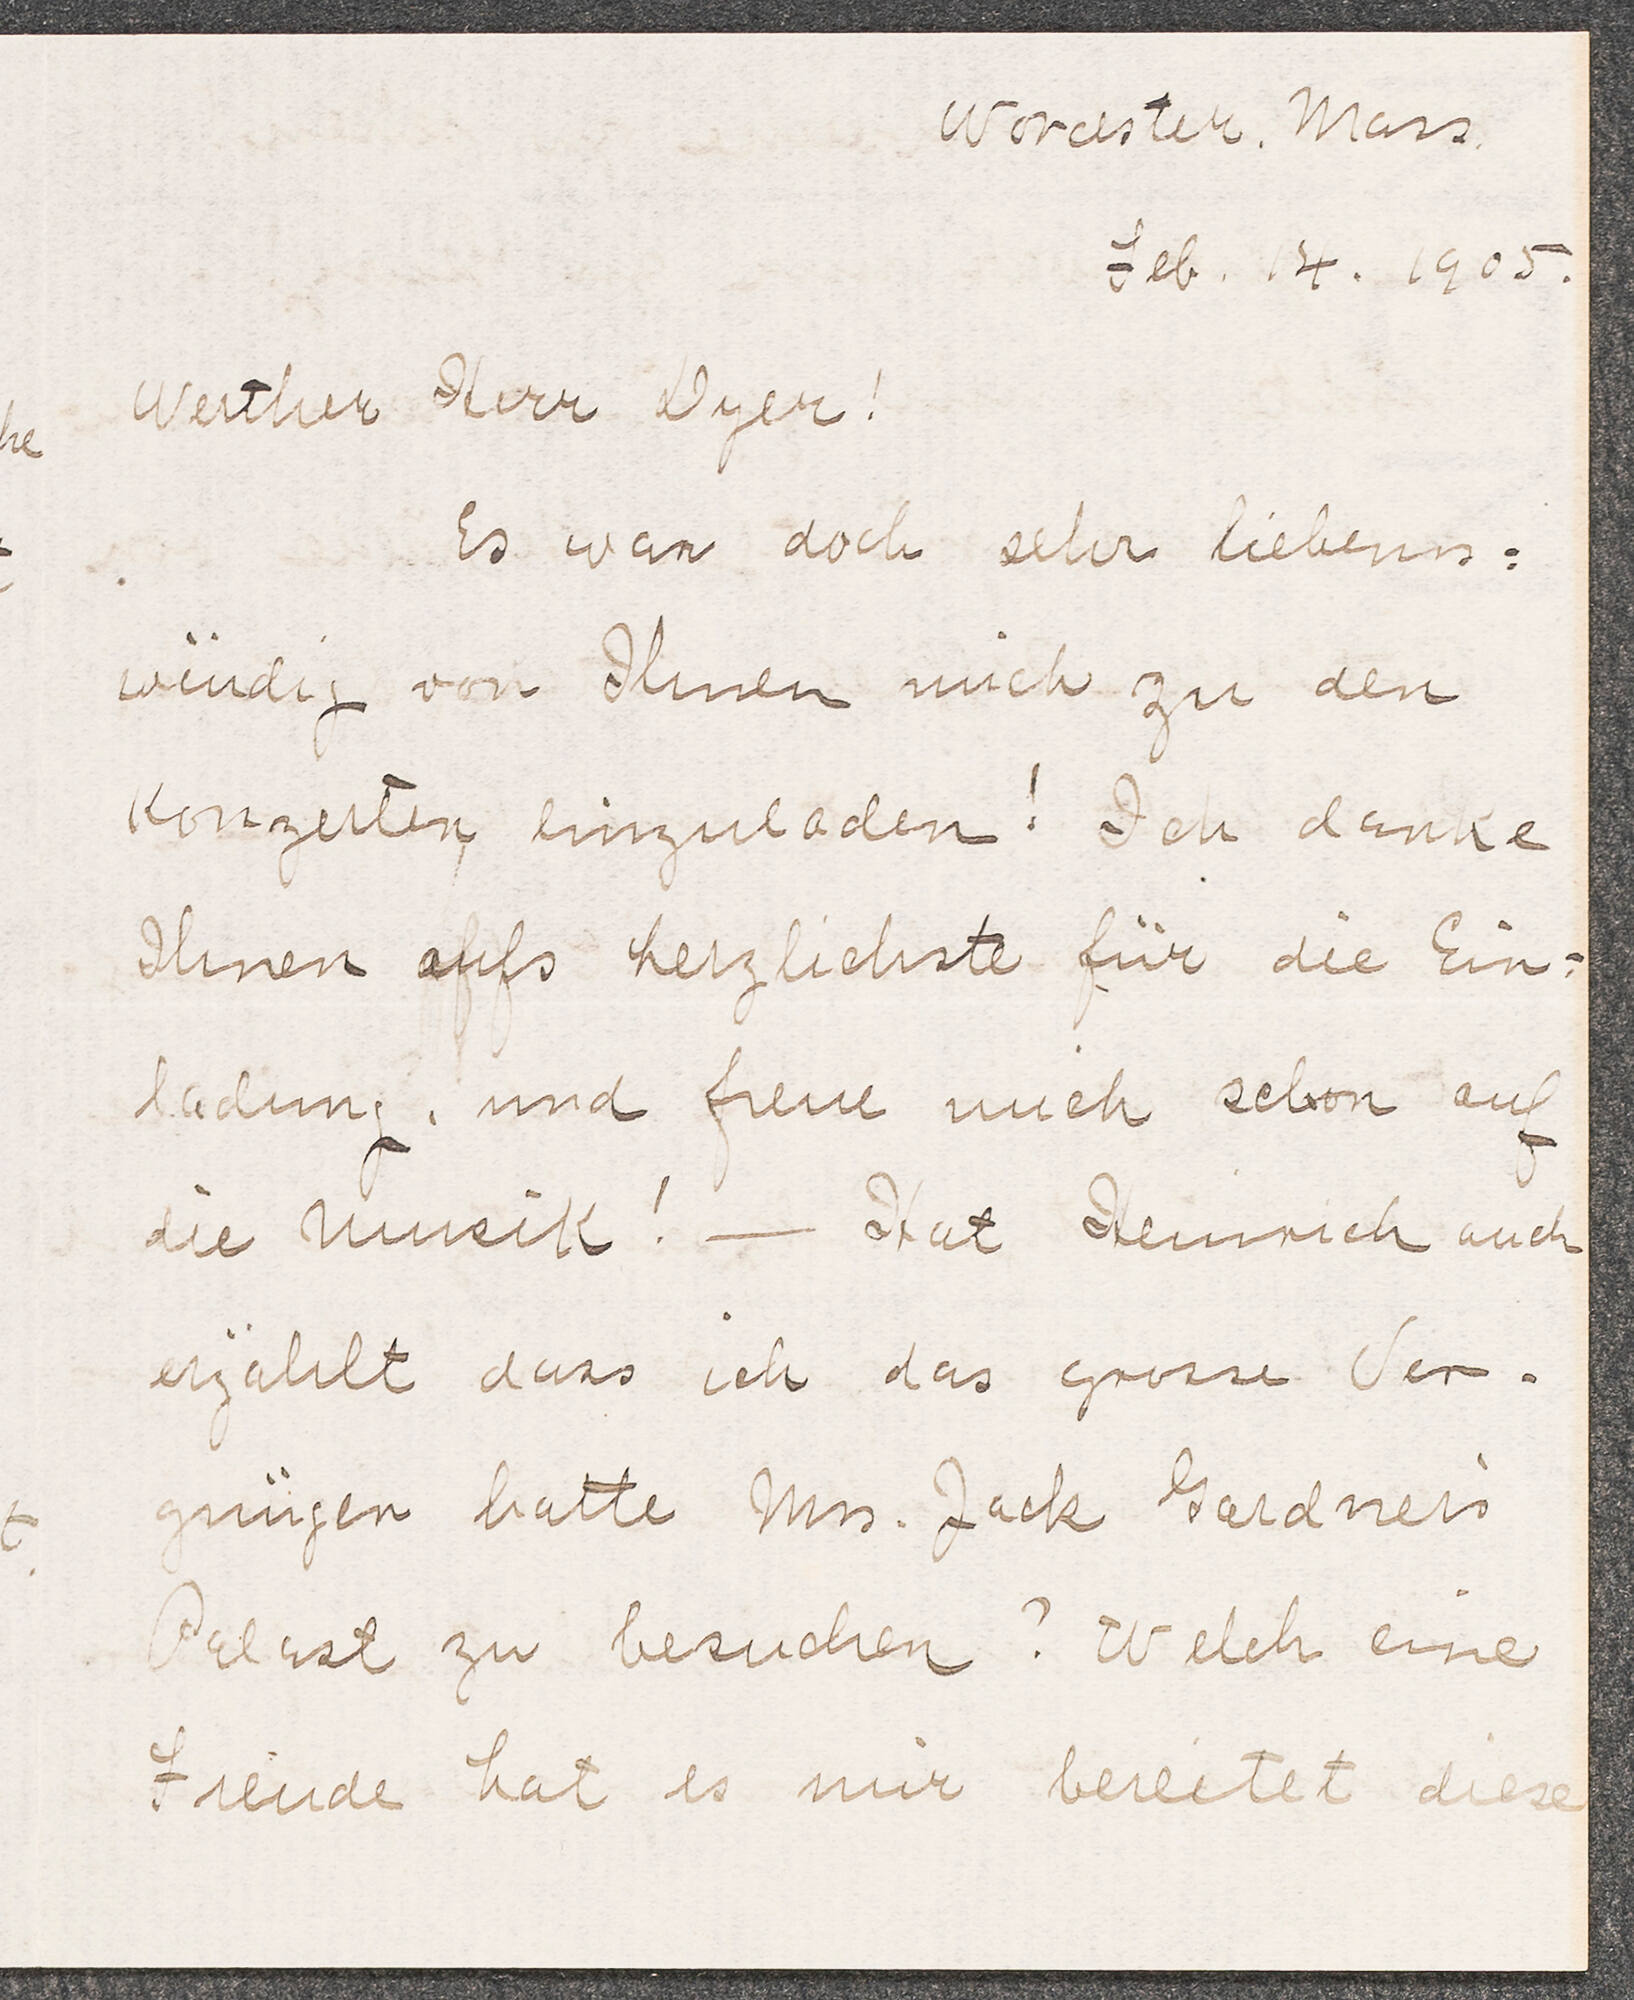 Worcester. Mass.
Feb. 14. 1905.
Werther Herr Dyer!
Es war doch sehr liebens:
würdig von Ihnen mich zu den
Konzerten, einzuladen! Ich danke
Ihnen aufs herzlichste für die Ein:
ladung, und freue mich schon auf
die Musik! — Hat Heinrich auch
erzählt dass ich das grosse Ver-
gnügen hatte Mrs. Jack Gardner's
Palast zu besuchen? Welch eine
Freude hat es mir bereitet diese